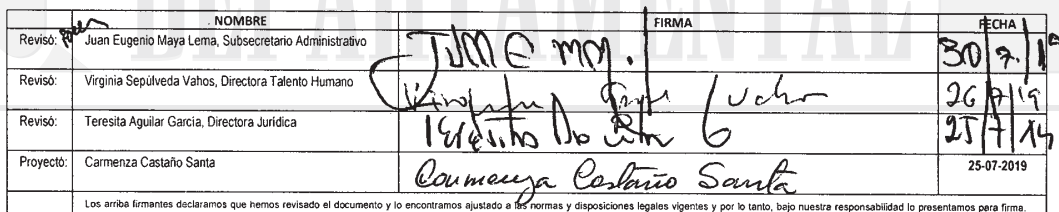 DEPARTAMENTAL
NOMBRE FIRMA FECHA
Revisó: Juan Eugenio Maya Lema, Subsecretario Administrativo 30/7/19
Revisó: Virginia Sepúlveda Vahos, Directora Talento Humano 26/7/19
Revisó: Teresita Aguilar García, Directora Jurídica 25/7/19
Proyectó: Carmenza Castaño Santa Carmenza Castaño Santa 25-07-2019
Los arriba firmantes declaramos que hemos revisado el documento y lo encontramos ajustado a las normas y disposiciones legales vigentes y por lo tanto, bajo nuestra responsabilidad lo presentamos para firma.